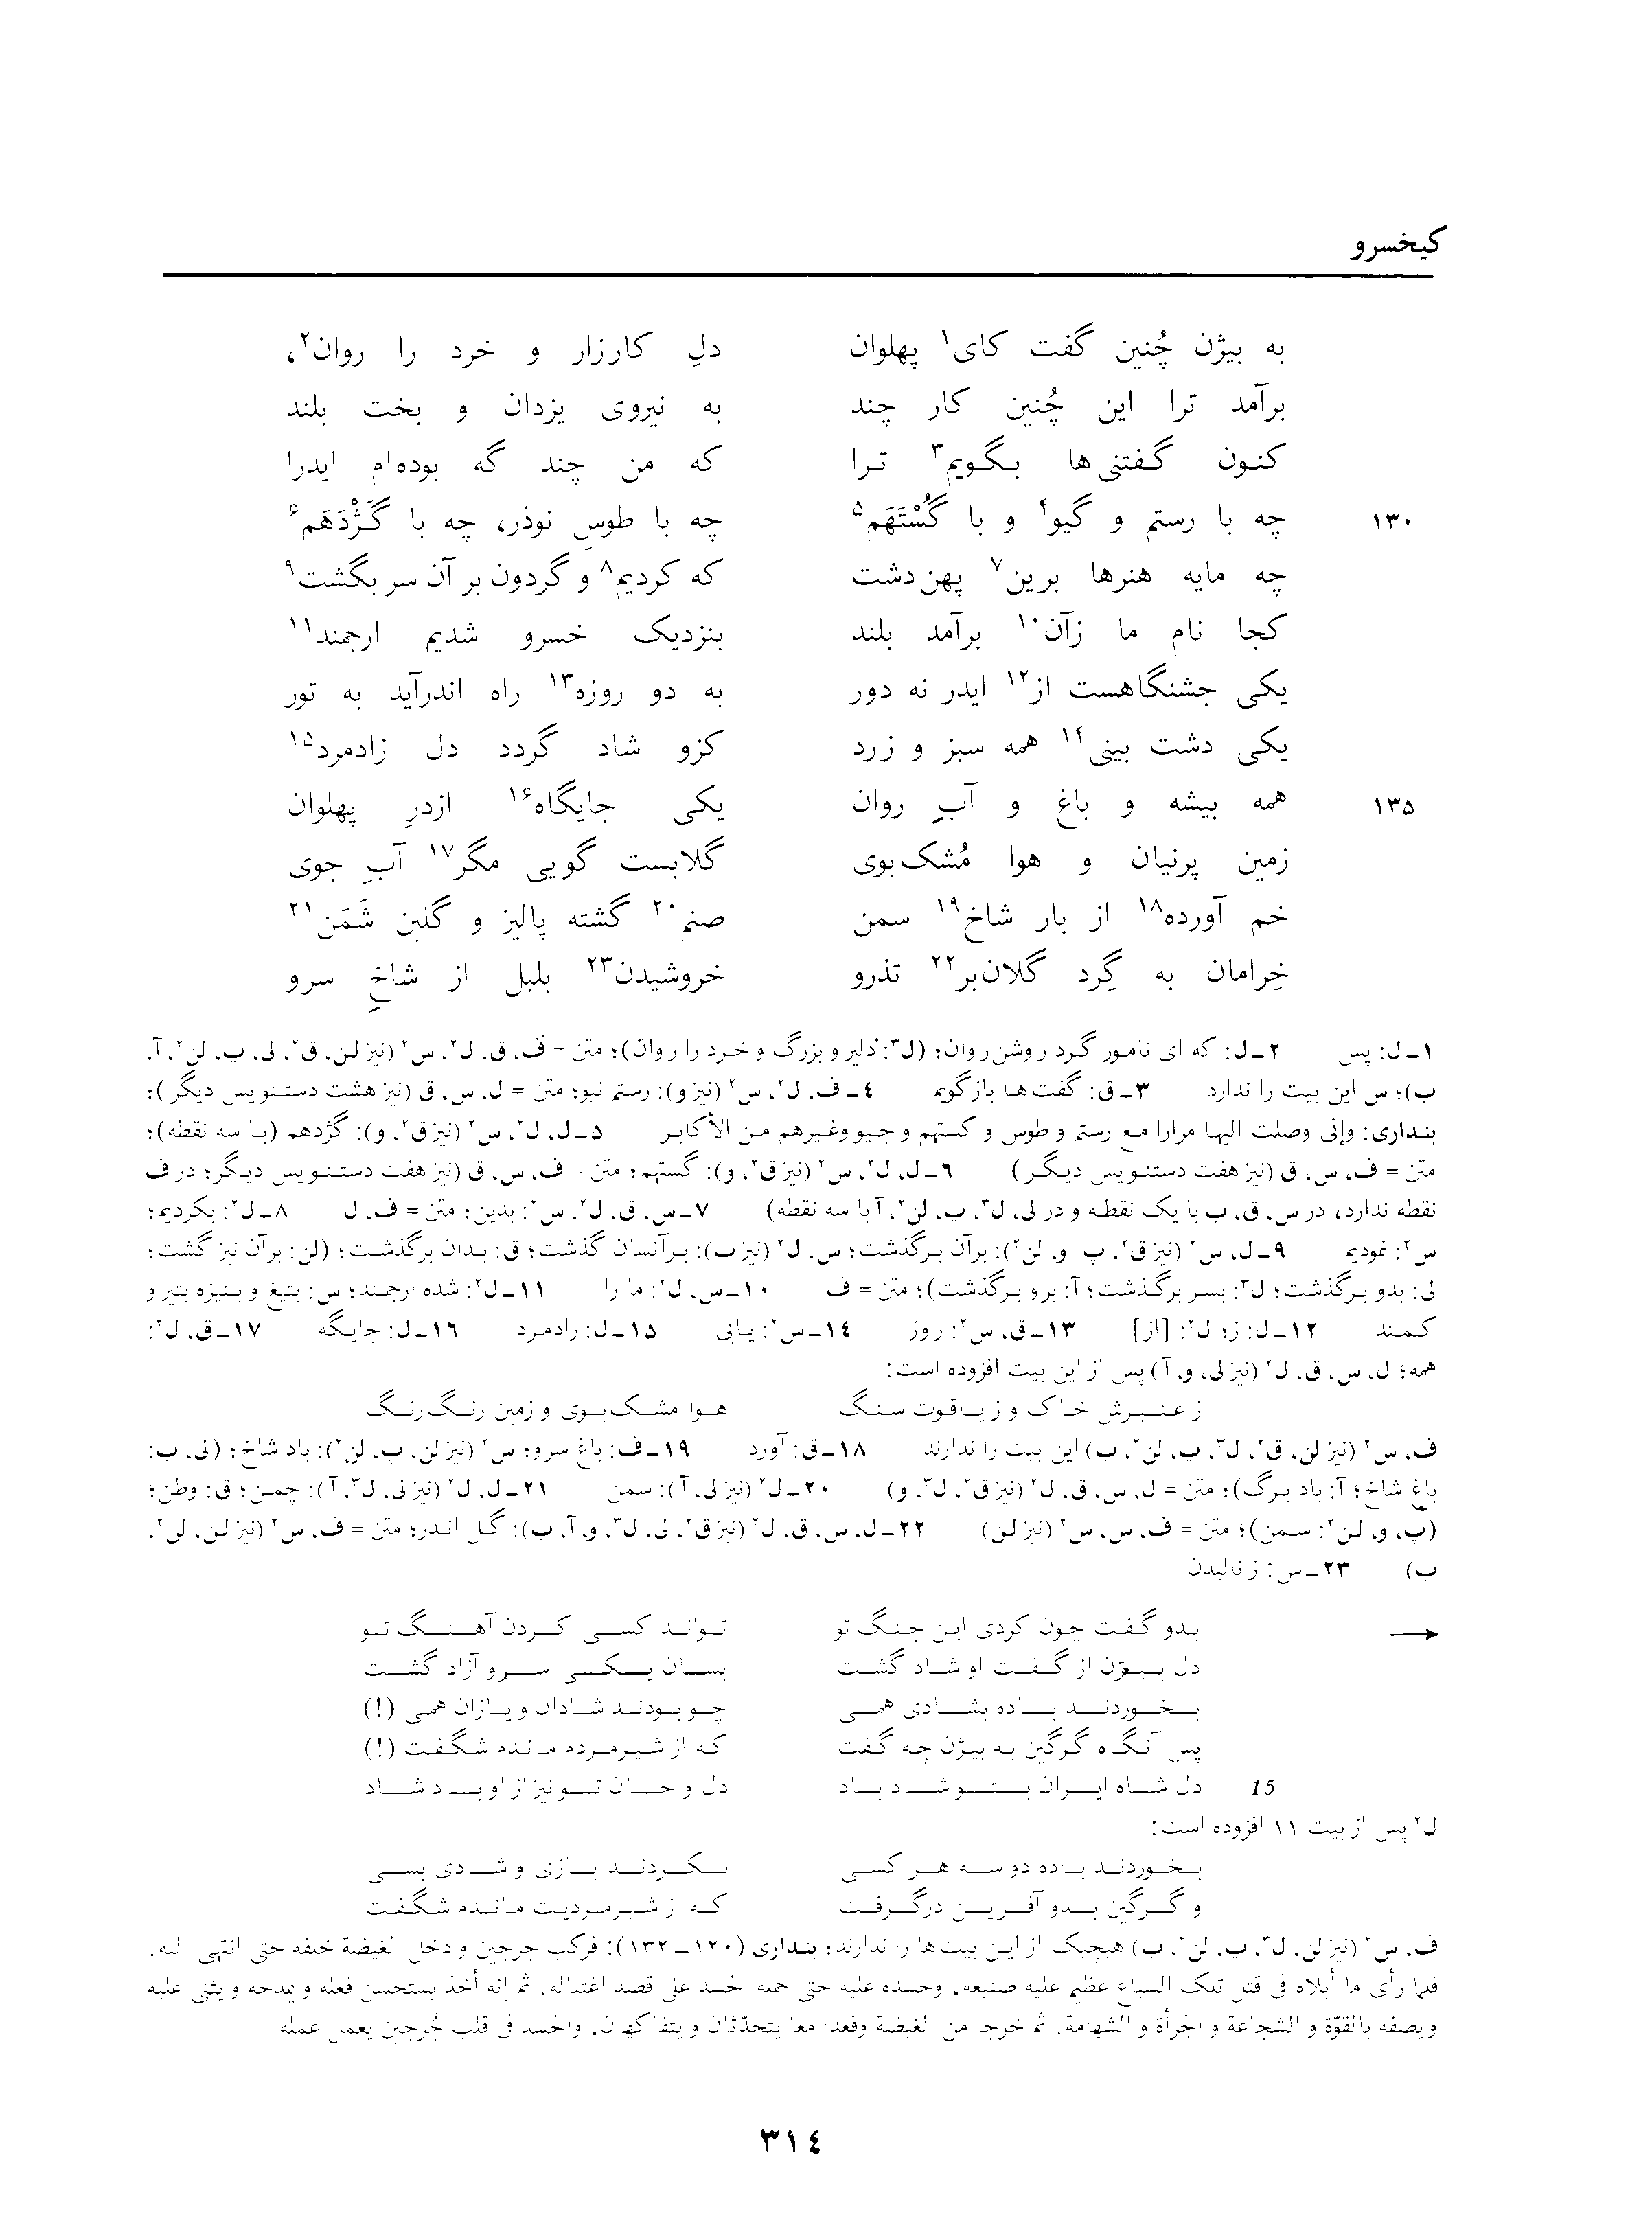 کیخسرو
به بیژن چُنین گفت کای۱ پهلوان دلِ کارزار و خرد را روان۲،
برآمد ترا این چُنین کار چند به نیروی یزدان و بخت بلند
کنون گفتنی‌ها بگویم۳ ترا که من چند گه بوده‌ام ایدرا
۱۳۰ چه با رستم و گیو۴ و با گُسْتَهَم۵ چه با طوسِ نوذر، چه با گَژْدَهَم۶
چه مایه هنرها برین۷ پهن‌دشت که کردیم۸ و گردون بر آن سر بگشت۹
کجا نام ما زآن۱۰ برآمد بلند بنزدیک خسرو شدیم ارجمند۱۱
یکی جشنگاهست از۱۲ ایدر نه دور به دو روزه۱۳ راه اندرآید به تور
یکی دشت بینی۱۴ همه سبز و زرد کزو شاد گردد دل زادمرد۱۵
۱۳۵ همه بیشه و باغ و آبِ روان یکی جایگاه۱۶ ازدرِ پهلوان
زمین پرنیان و هوا مُشک‌بوی گلابست گویی مگر۱۷ آبِ جوی
خم آورده۱۸ از بار شاخ۱۹ سمن صنم۲۰ گشته پالیز و گلبن شَمَن۲۱
خِرامان به گِرد گلان‌بر۲۲ تذرو خروشیدن۲۳ بلبل از شاخِ سرو
۱ـ ل: پس ۲ـ ل: که ای نامور گرد روشن‌روان؛ (ل۳: دلیر و بزرگ و خرد را روان)؛ متن = ف، ق، ل۲، س۲ (نیز لن، ق۲، لی، پ، لن۲، آ،
ب)؛ س این بیت را ندارد ۳ـ ق: گفت‌ها بازگویم ۴ـ ف، ل۲، س۲ (نیز و): رستم نیو؛ متن = ل، س، ق (نیز هشت دستنویس دیگر)؛
بنداری: وإنی وصلت الیها مرارا مع رستم و طوس و کستهم و جیو وغیرهم من الأکابر ۵ـ ل، ل۲، س۲ (نیز ق۲، و): گژدهم (با سه نقطه)؛
متن = ف، س، ق (نیز هفت دستنویس دیگر) ۶ـ ل، ل۲، س۲ (نیز ق۲، و): گستهم؛ متن = ف، س، ق (نیز هفت دستنویس دیگر؛ در ف
نقطه ندارد، در س، ق، ب با یک نقطه و در لی، ل۳، پ، لن۲، آ با سه نقطه) ۷ـ س، ق، ل۲، س۲: بدین؛ متن = ف، ل ۸ـ ل۲: بکردیم؛
س۲: نمودیم ۹ـ ل، س۲ (نیز ق۲، پ، و، لن۲): برآن برگذشت؛ س، ل۲ (نیز ب): برآنسان گذشت؛ ق: بدان برگذشت؛ (لن: برآن نیز گشت؛
لی: بدو برگذشت؛ ل۳: بسر برگذشت؛ آ: برو برگذشت)؛ متن = ف ۱۰ـ س، ل۲: ما را ۱۱ـ ل۲: شده ارجمند؛ س: بتیغ و بنیزه بتیر و
کمند ۱۲ـ ل: ز؛ ل۲: [از] ۱۳ـ ق، س۲: روز ۱۴ـ س۲: یابی ۱۵ـ ل: رادمرد ۱۶ـ ل: جایگه ۱۷ـ ق، ل۲:
همه؛ ل، س، ق، ل۲ (نیز لی، و، آ) پس از این بیت افزوده است:
ز عنبرش خاک و ز یاقوت سنگ هوا مشک‌بوی و زمین رنگ‌رنگ
ف، س۲ (نیز لن، ق۲، ل۳، پ، لن۲، ب) این بیت را ندارند ۱۸ـ ق: آورد ۱۹ـ ف: باغ سرو؛ س۲ (نیز لن، پ، لن۲): باد شاخ؛ (لی، ب:
باغ شاخ؛ آ: باد برگ)؛ متن = ل، س، ق، ل۲ (نیز ق۲، ل۳، و) ۲۰ـ ل۲ (نیز لی، آ): سمن ۲۱ـ ل، ل۲ (نیز لی، ل۳، آ): چمن؛ ق: وطن؛
(پ، و، لن۲: سمن)؛ متن = ف، س، س۲ (نیز لن) ۲۲ـ ل، س، ق، ل۲ (نیز ق۲، لی، ل۳، و، آ، ب): گل اندر؛ متن = ف، س۲ (نیز لن، لن۲،
ب) ۲۳ـ س: ز نالیدن
→ بدو گفت چون کردی این جنگ تو تواند کسی کردن آهنگ تو
دل بیژن از گفت او شاد گشت بسان یکی سرو آزاد گشت
بخوردند باده بشادی همی چو بودند شادان و یازان همی (!)
پس آنگاه گرگین به بیژن چه گفت که از شیرمرده مانده شگفت (!)
15 دل شاه ایران بتو شاد باد دل و جان تو نیز از او باد شاد
ل۲ پس از بیت ۱۱ افزوده است:
بخوردند باده دو سه هر کسی بکردند بازی و شادی بسی
و گرگین بدو آفرین درگرفت که از شیرمردیت مانده شگفت
ف، س۲ (نیز لن، ل۳، پ، لن۲، ب) هیچیک از این بیت‌ها را ندارند؛ بنداری (۱۲۰ـ۱۳۲): فرکب جرجین و دخل الغیضة خلفه حتی انتهی الیه.
فلما رأی ما أبلاه فی قتل تلک السباع عظم علیه صنیعه. وحسده علیه حتی حمله الحسد علی قصد اغتیاله. ثم إنه أخذ یستحسن فعله و یمدحه و یثنی علیه
و یصفه بالقوّة و الشجاعة و الجرأة و الشهامة. ثم خرجا من الغیضة وقعدا معا یتحدّثان و یتفاکهان. والحسد فی قلب جُرجین یعمل عمله
۳۱٤